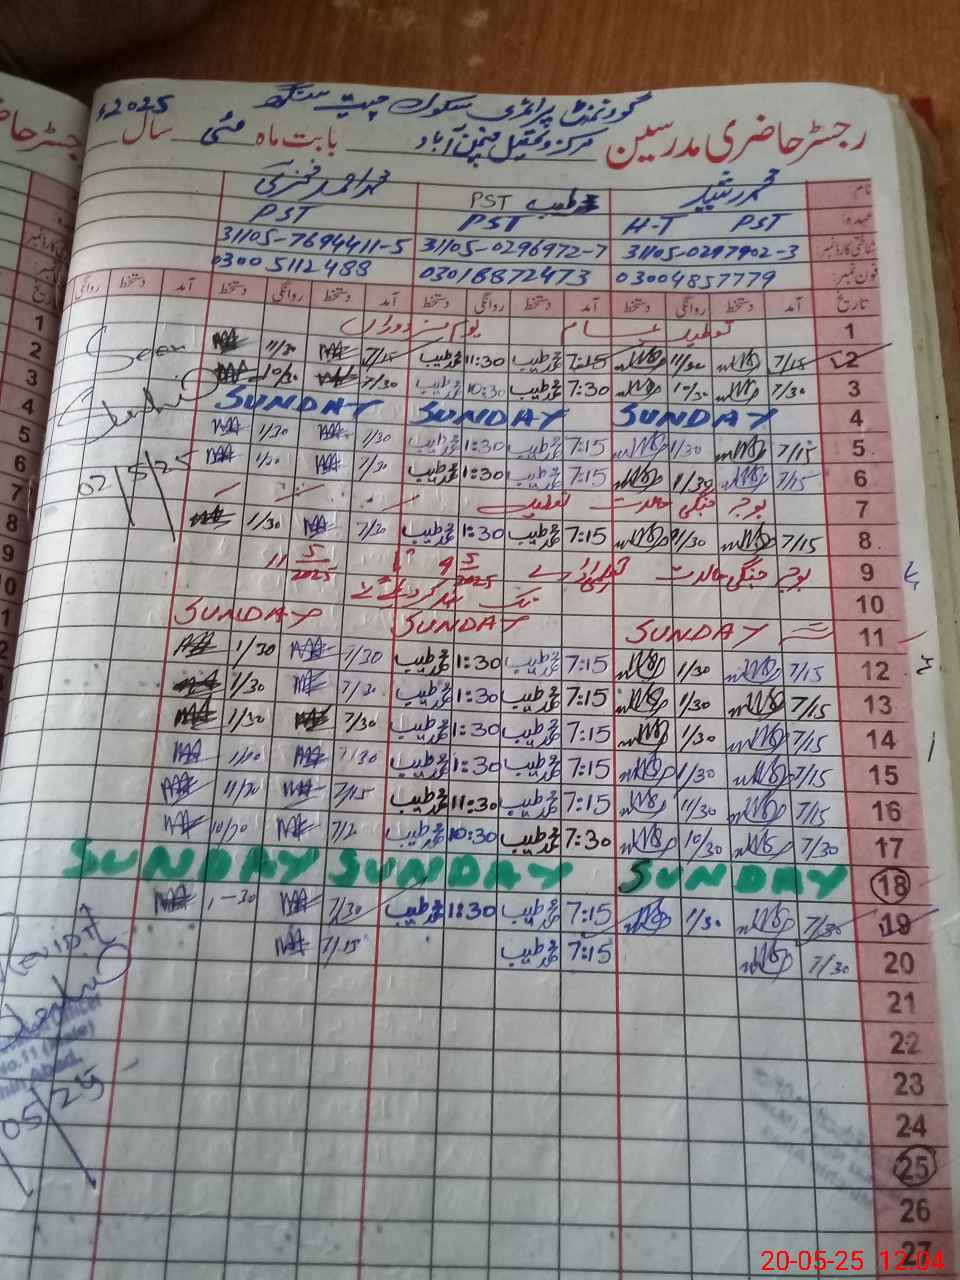 گورنمنٹ پرائمری سکول چپت سنگھ
رجسٹر حاضری مدرسین مرکز وتحصیل منچن آباد بابت ماہ مئی سال 2025ء
نام محمد رشید محمد طیب PST
عہدہ PST H-T PST PST
شناختی کارڈ نمبر 31105-0297902-3 31105-0296972-7 31105-7694411-5
فون نمبر 03004857779 03018872473 03005112488
تاریخ آمد دستخط روانگی دستخط آمد دستخط روانگی دستخط آمد دستخط روانگی دستخط آمد دستخط روانگی
1 تعطیل عام یوم مزدوراں
2 7/15 11/30 7:15 محمد طیب 11:30 محمد طیب 7/15 11/30 Seen
3 7/30 10/30 7:30 محمد طیب 10:30 محمد طیب 7/30 10/30
4 SUNDAY SUNDAY SUNDAY
5 7/15 1/30 7:15 محمد طیب 1:30 محمد طیب 7/30 1/30
6 7/15 1/30 7:15 محمد طیب 1:30 محمد طیب 7/30 1/30 02/5/25
7 بوجہ جنگی حالت تعطیل
8 7/15 1/30 7:15 محمد طیب 1:30 محمد طیب 7/30 1/30
9 بوجہ جنگی حالت 9 5/2025 11 5/2025
10 تک
11 SUNDAY SUNDAY SUNDAY
12 7/15 1/30 7:15 محمد طیب 1:30 محمد طیب 7/30 1/30
13 7/15 1/30 7:15 محمد طیب 1:30 محمد طیب 7/30 1/30
14 7/15 1/30 7:15 محمد طیب 1:30 محمد طیب 7/30 1/30
15 7/15 1/30 7:15 محمد طیب 1:30 محمد طیب 7/30 1/30
16 7/15 11/30 7:15 محمد طیب 11:30 محمد طیب 7/15 11/30
17 7/30 10/30 7:30 محمد طیب 10:30 محمد طیب 10/30
18 SUNDAY SUNDAY SUNDAY
19 7/30 1/30 7:15 محمد طیب 1:30 محمد طیب 7/30 1-30
20 7/30 7:15 محمد طیب 7/15
21
22
23
24
25
26
27
05/25
20-05-25 12:04